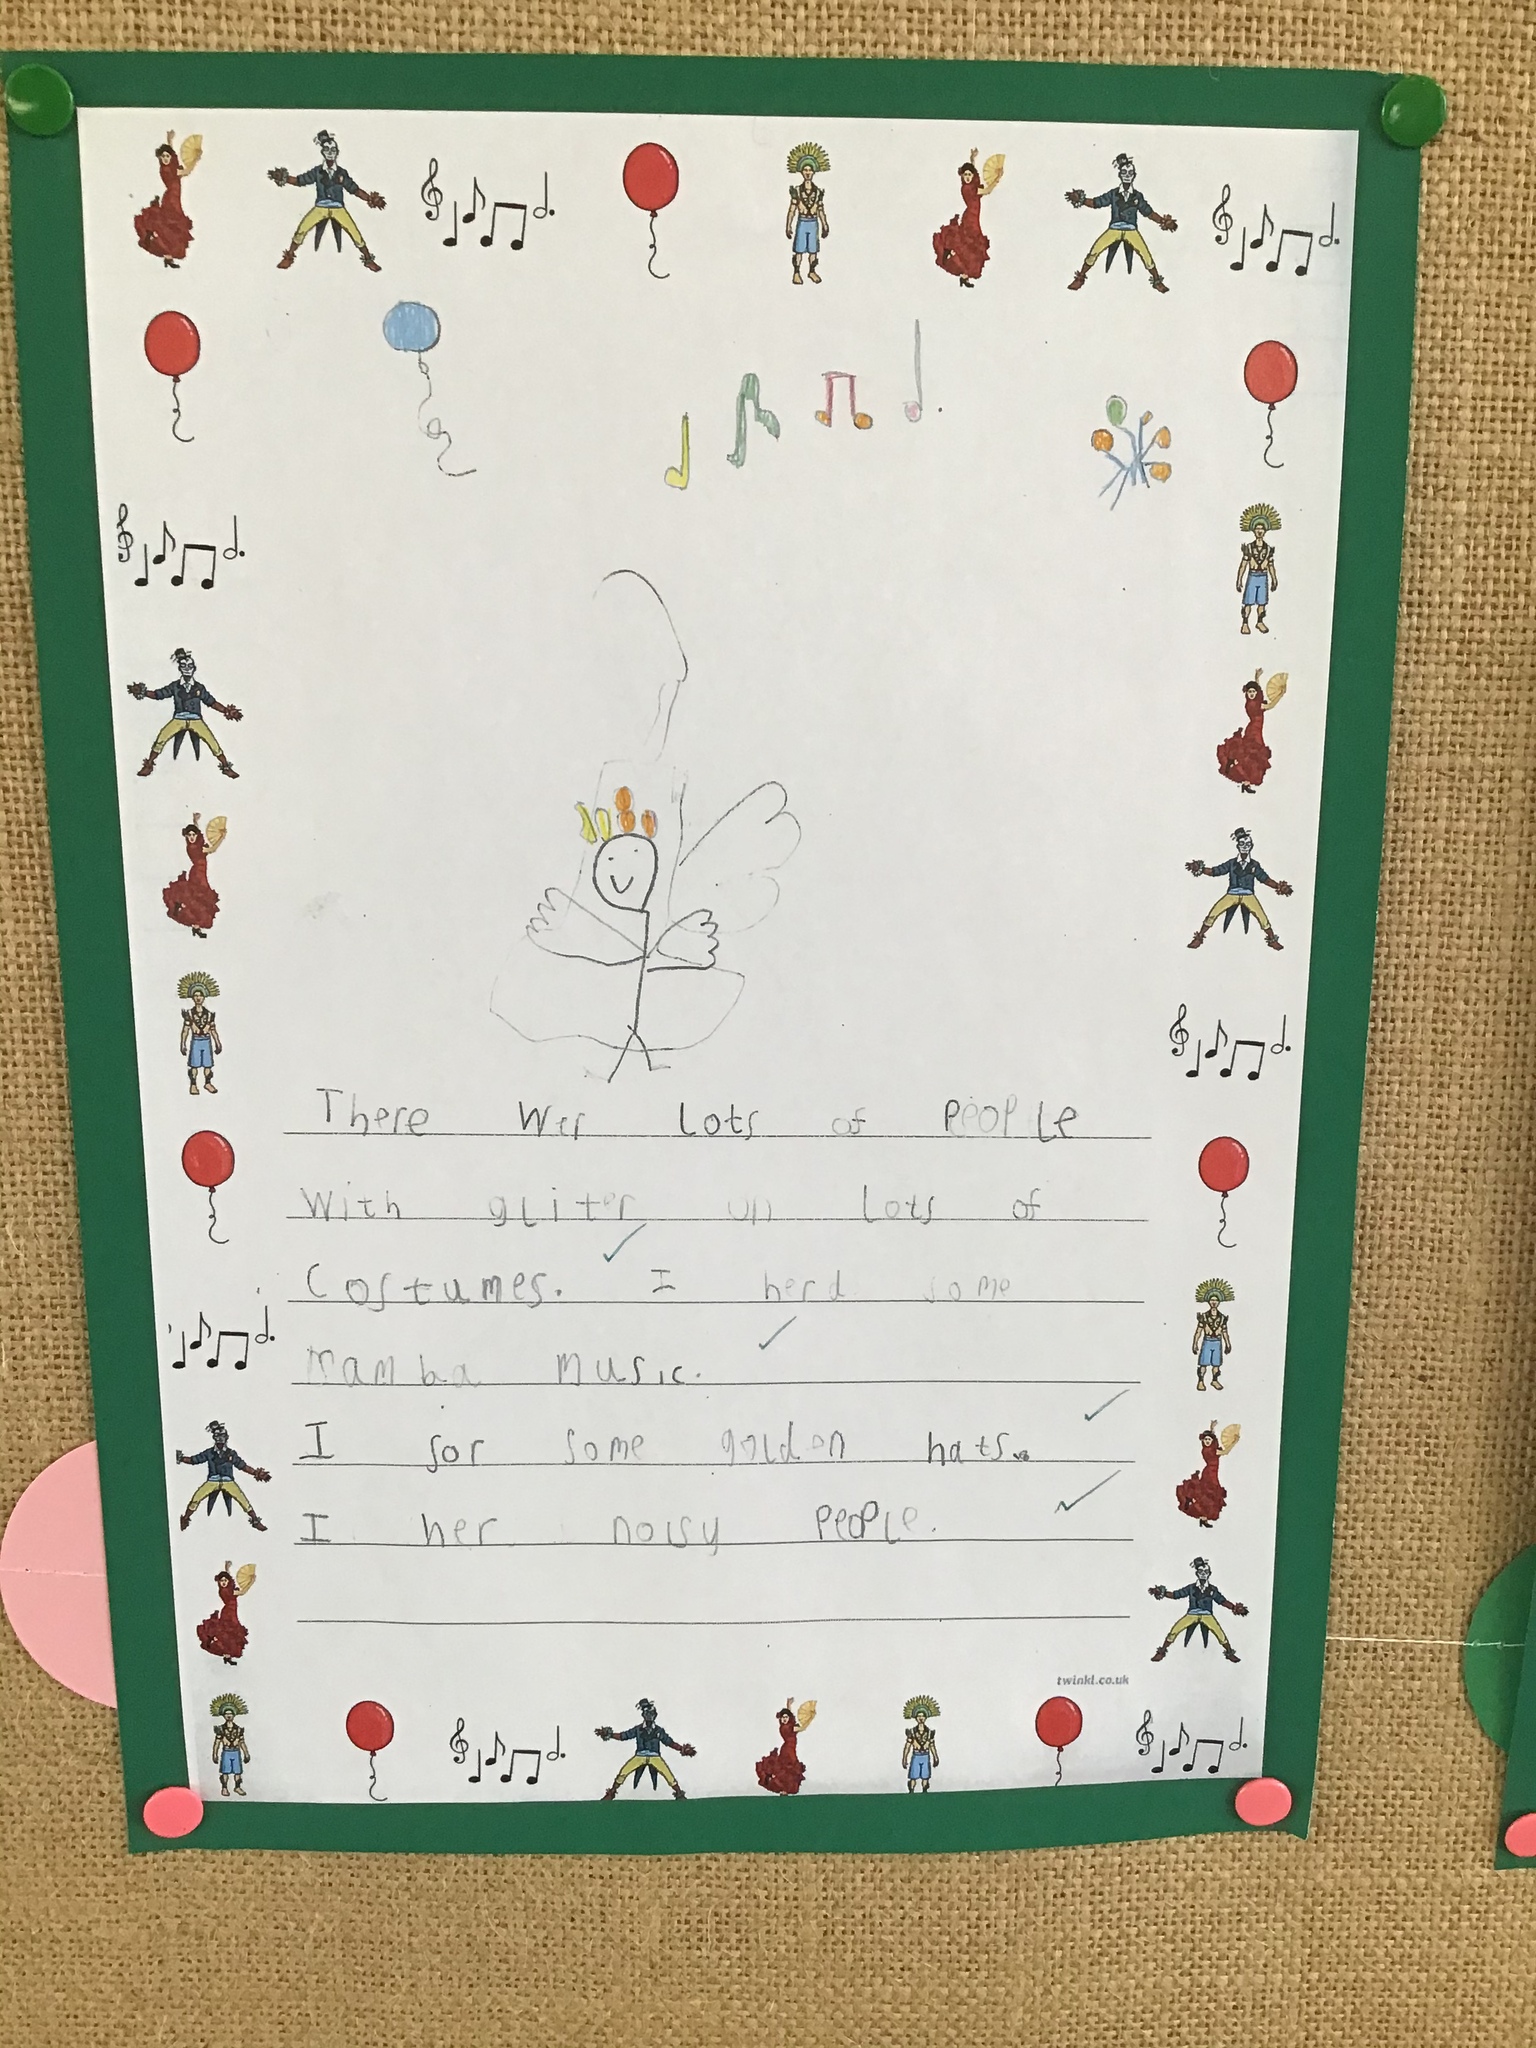 There wer lots of people
with gliter un lots of
costumes. I herd some
mamba music.
I sor some golden hats.
I her noisy people.
twinkl.co.uk